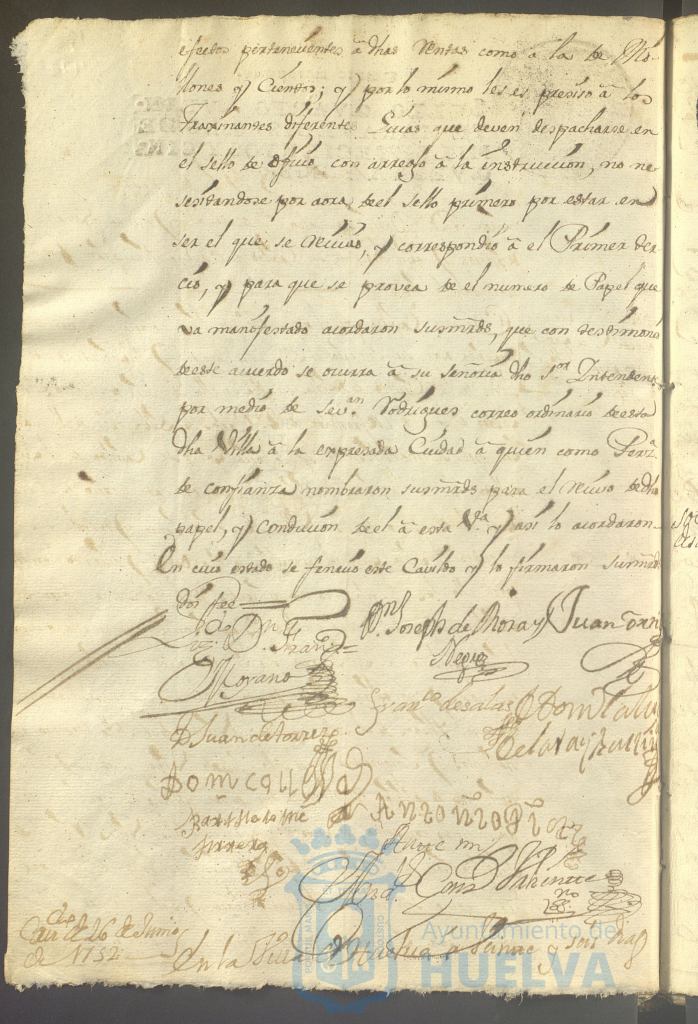 efectos pertenecientes â dhas Rentas como a la de Mi-
llones y Cientos; y por lo mismo les es preciso â los
Traginantes diferentes Guias que deven despacharse en
el sello de oficio con arreglo â la instruccion, no ne
sesitandose por aora de el sello primero por estar en
ser el que se recivio, y correspondio â el Primer ter
cio, y para que se provea de el numero de Papel que
va manifestado acordaron susmrds, que con testimonio
de este acuerdo se ocurra â su señoria dho Sor. Intendente
por medio de Sevan. Rodrigues correo ordinario de esta
dha Villa â la expresada Ciudad â quien como Perzª
de confianza nombraron susmrds para el recivo de dho
papel, y conducion de el â esta Vª. y asi lo acordaron
En cuio estado se fenecio este Cavildo y lo firmaron susmrds
doi fee
Lizdo. Dn. Franz
Moyano
Dn. Joseph de Mora y
Negro
Juan
D Juan de torres
Franco de salas
Bartholome
herrera
Antonio
Ante mi
Cavdo de 26 de Junio
de 1752
En la Villa de Huelva a veinte y seis dias
Ayuntamiento de
HUELVA